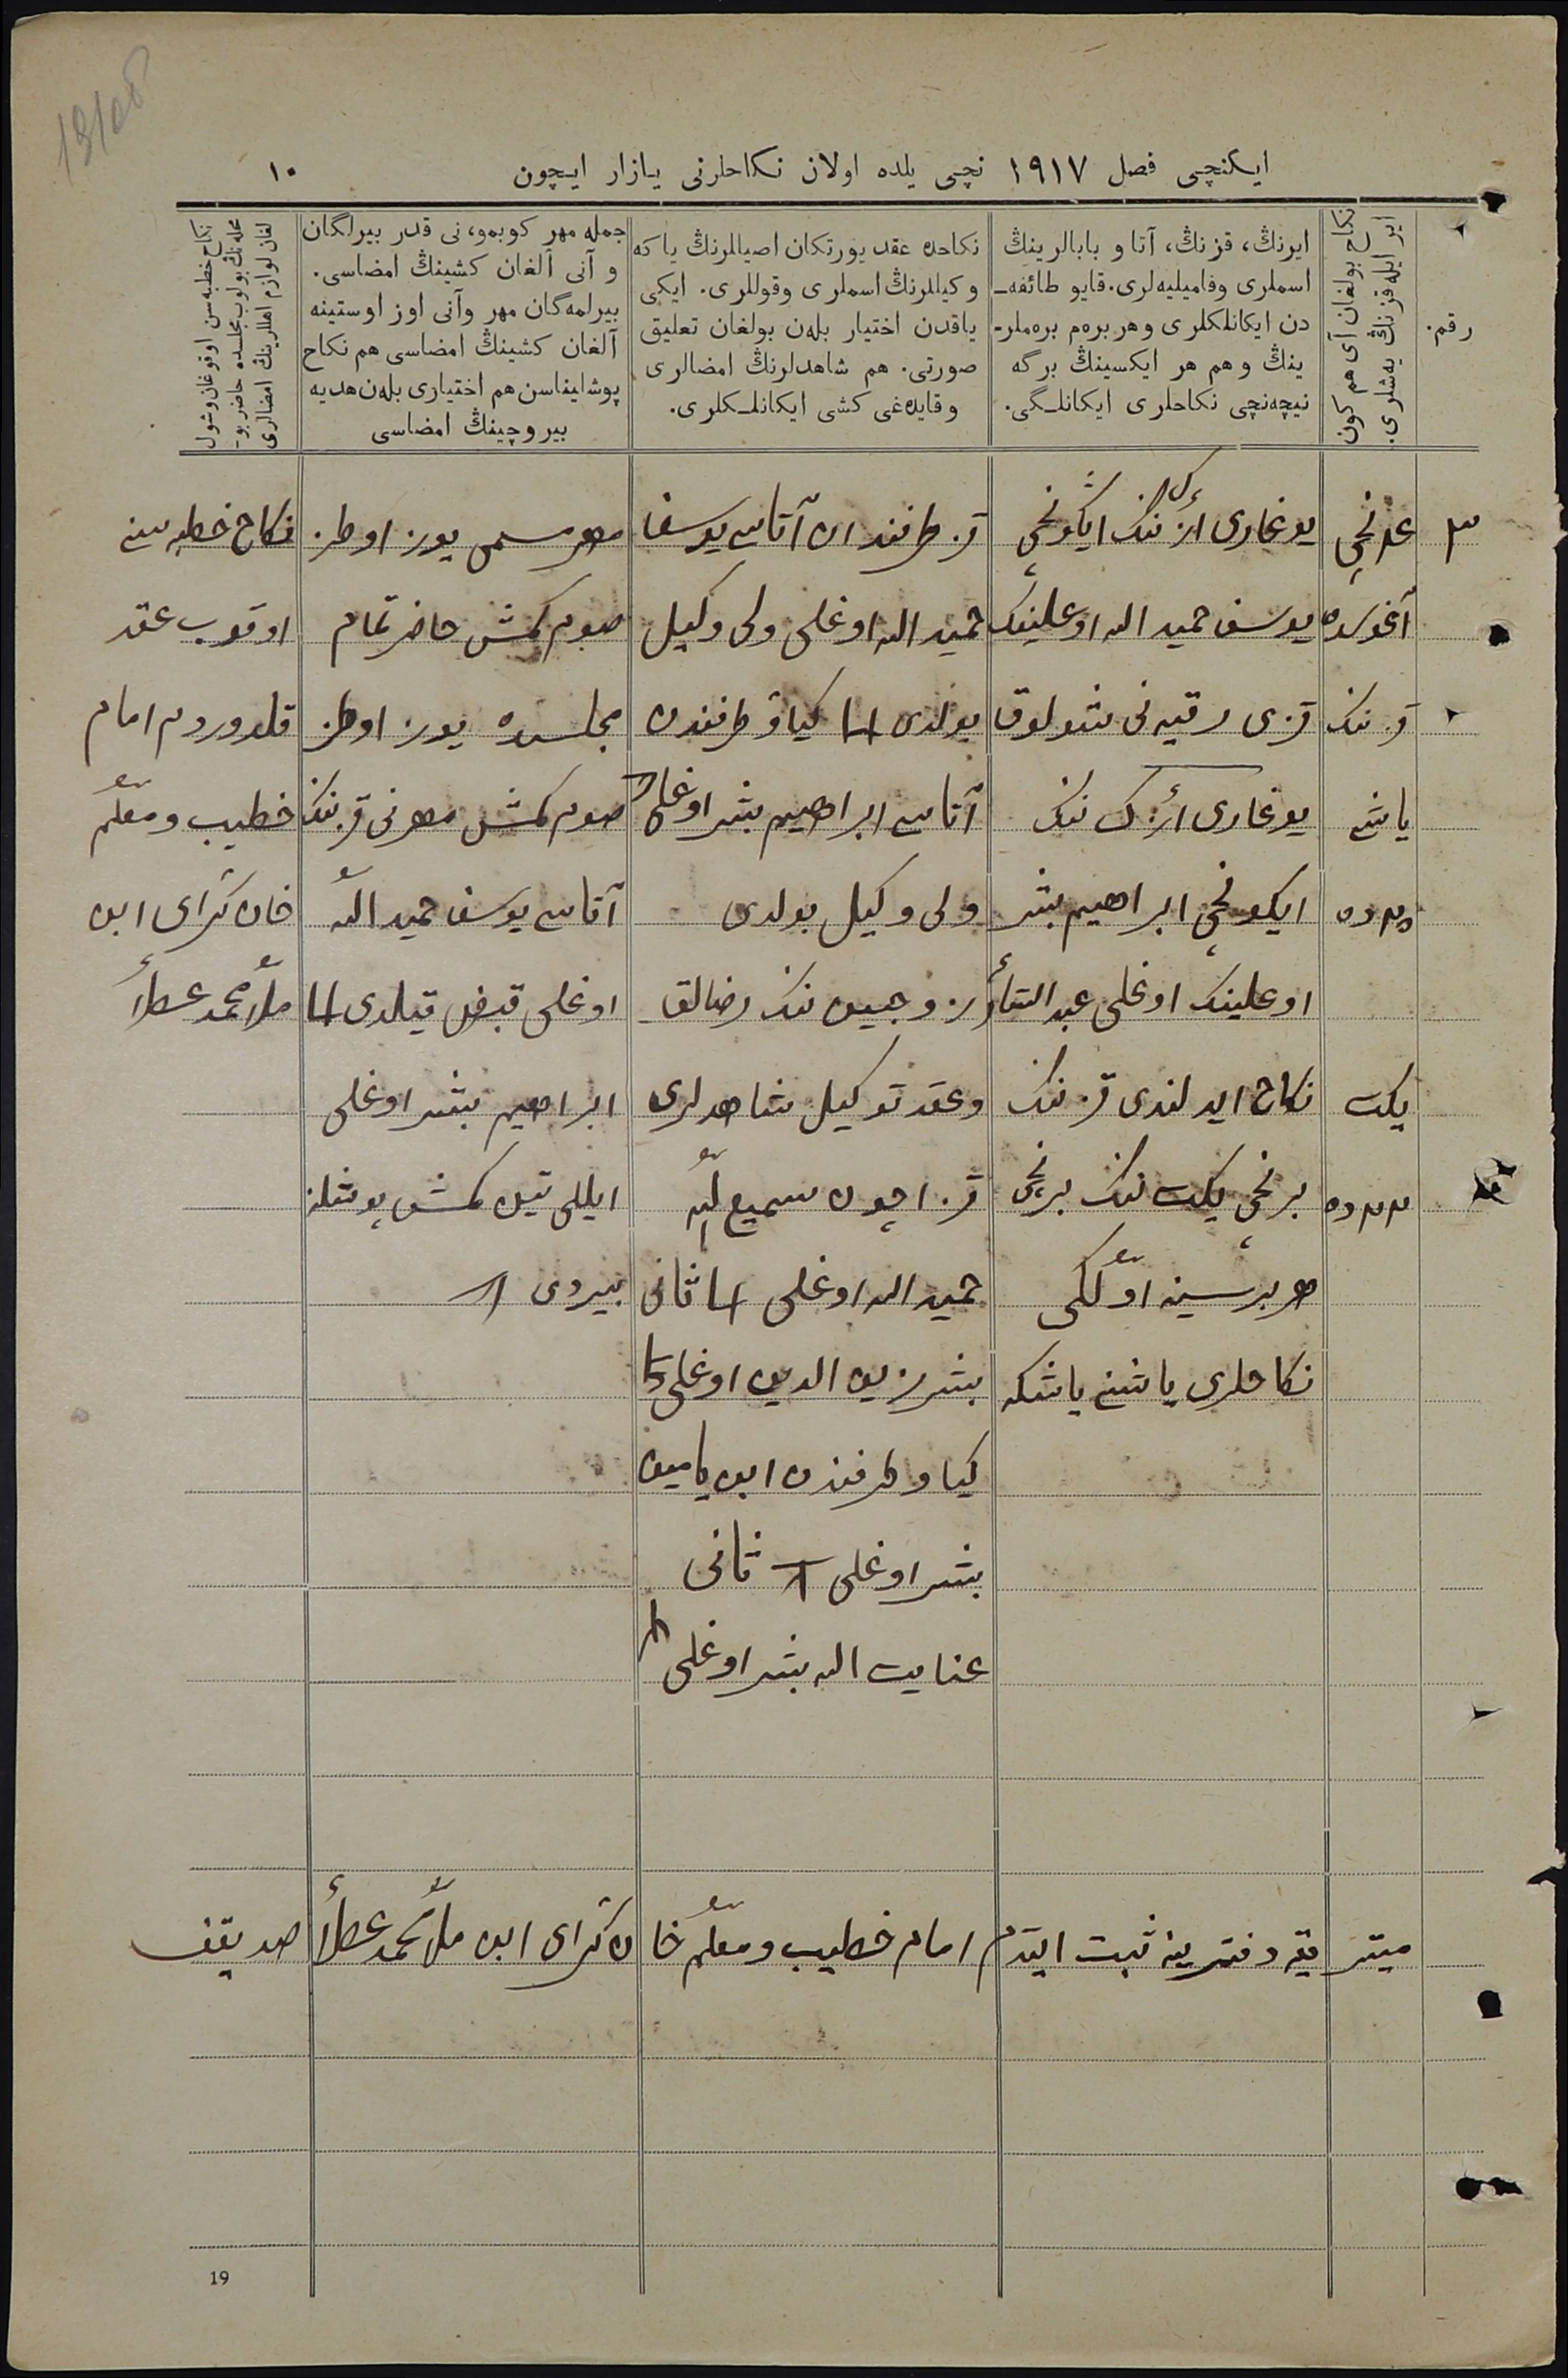 ایکنچی فصل ١٩١٧ نچی یلده اولان نکاحلرنی یازار ایچون
١٠
رقم.
نکاح بولغان آی هم کون
ایر ایله قزنڭ یه‌شلری.
ایرنڭ، قزنڭ، آتا و بابالرینڭ
اسملری وفامیلیه‌لری. قایو طائفه‌ـ
دن ایکانلکلری وهر بره‌م بره‌ملر-
ینڭ وهم هر ایکسینڭ برگه
نیچه‌نچی نکاحلری ایکانلـگی.
نکاحده عقد یورتکان اصیاللرنڭ یا که
وکیللرنڭ اسملری وقوللری. ایکی
یاقدن اختیار بله‌ن بولغان تعلیق
صورتی. هم شاهدلرنڭ امضالری
وقایده‌غی کشی ایکانلـکلری.
جمله مهر کوبمو، نی قدر بیرلگان
و آنی آلغان کشینڭ امضاسی.
بیرلمه‌گان مهر وآنی اوز اوستینه
آلغان کشینڭ امضاسی هم نکاح
پوشلیناسن هم اختیاری بله‌ن هدیه
بیروچینڭ امضاسی
نکاح خطبه‌سن اوقوغان وشول
محله‌نڭ بولوب مجلسده حاضر بو-
لغان لوازم اهللرینڭ امضالری
٣
نچی
آغوستده
قز ننک
یاشی
ده
یکت
ده
یوغاری ننک ایکونچی
یوسف حمید الله اوغلینک
قزی رقیه نی شولوق
یوغاری ننک
ایکونچی ابراهیم بشر
اوغلینک اوغلی عبد الستار
نکاح ایدلندی قز ننک
برنچی یکت ننک برنچی
هر برسینه اوّلکی
نکاحلری یاشینه یاشکه
قز طرفندان آتاسی یوسف
حمید الله اوغلی ولی وکیل
بولدی کیاو طرفندن
آتاسی ابراهیم بشر اوغلی
ولی وکیل بولدی
زوجین ننک رضالق
وعقد توکیل شاهدلری
قز اچون سمیع الله
حمید الله اوغلی ثانی
بشر زین الدین اوغلی
کیاو طرفندن ابن یامین
بشر اوغلی ثانی
عنایت الله بشر اوغلی
مهر مسمی یوز اوطز
صوم کمش حاضر تمام
مجلسده یوز اوطز
صوم کمش مهرنی قز ننک
آتاسی یوسف حمید الله
اوغلی قبض قیلدی
ابراهیم بشر اوغلی
ایللی تین کمش پوشلنه
بیردی
نکاح خطبه سنی
اوقوب عقد
قلدوردم امام
خطیب ومعلّم
خان کرای ابن
ملّا محمد عطاء
میتریقه دفترینه ثبت ایتدم امام خطیب ومعلّم خان کرای ابن ملّا محمد عطاء صدیقف
19